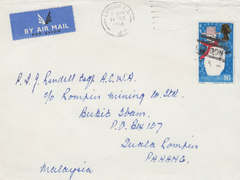 BY AIR MAIL
PAR AVION
1/6
P. A. J. Rendell Esq. A.C.W.A.
c/o Rompin Mining Co. Ltd.
Bukit Ibam.
P.O. Box 107
Kuala Rompin
PAHANG.
Malaysia